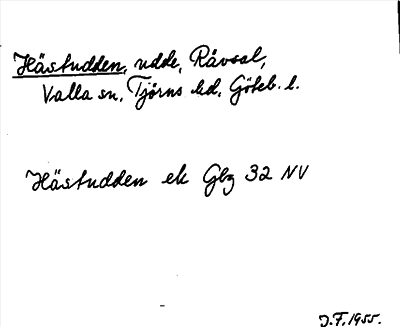 Hästudden, udde, Råvsal,
Valla sn, Tjörns hd, Göteb. l.
Hästudden ek Gbg 32 NV
J.F. 1955.